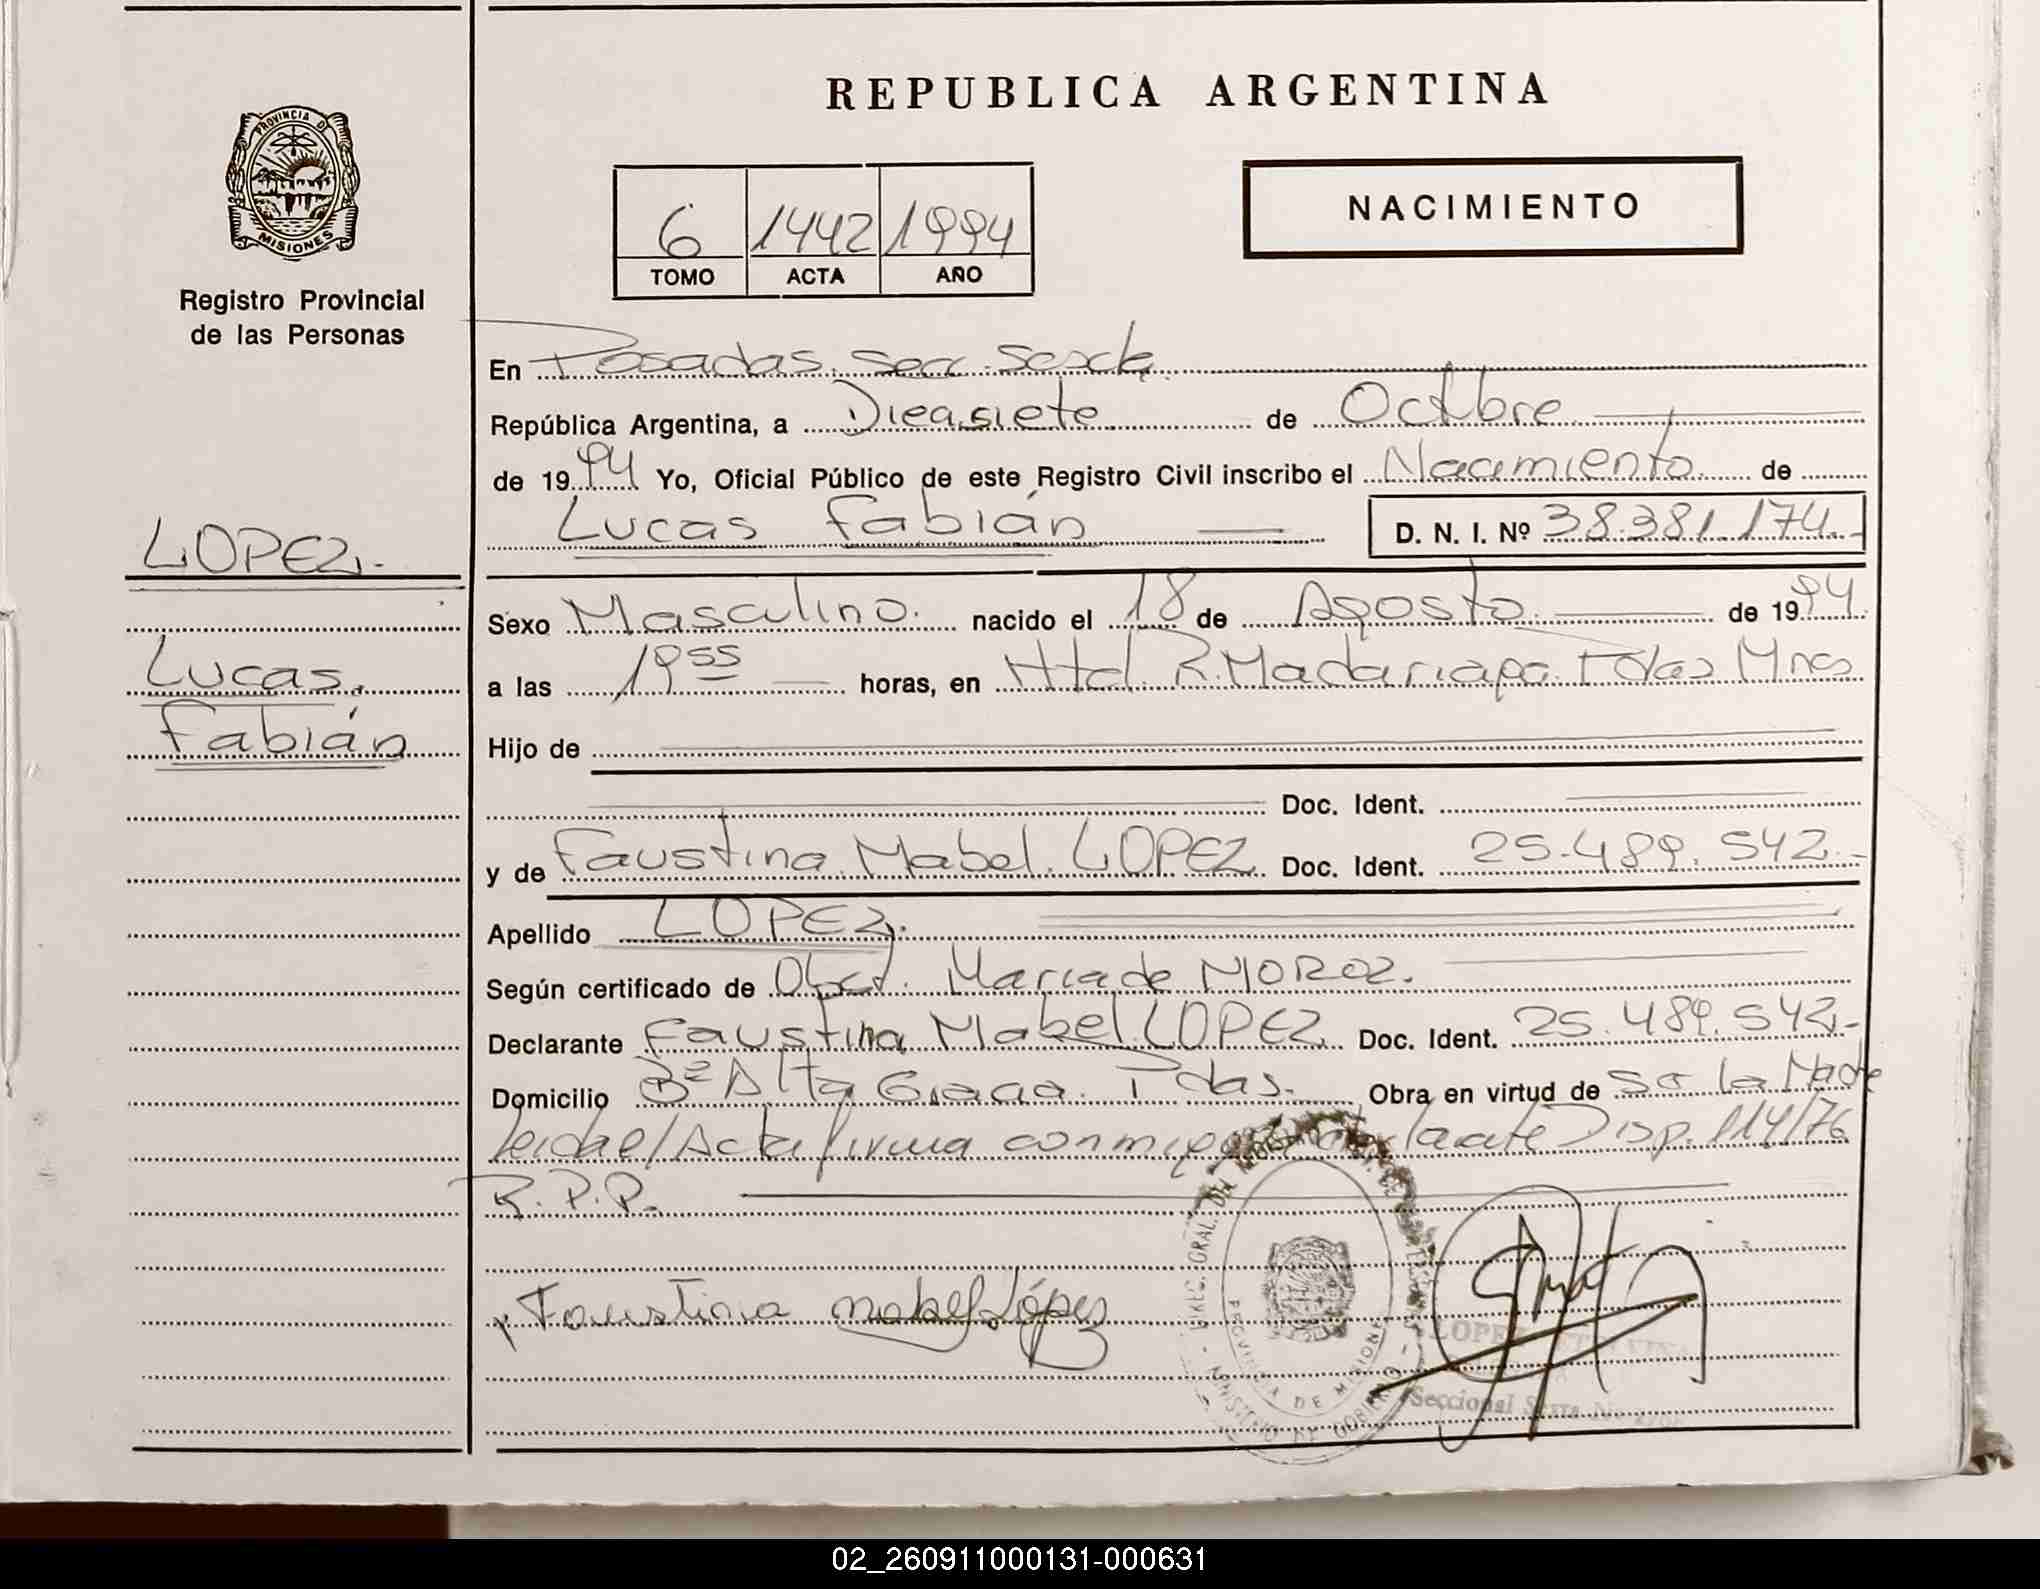 REPUBLICA ARGENTINA
PROVINCIA DE
MISIONES
Registro Provincial
de las Personas
NACIMIENTO
6 1442 1994
TOMO ACTA AÑO
En Posadas. Sec. Sexta
República Argentina, a Diecisiete de Octubre
de 1994 Yo, Oficial Público de este Registro Civil inscribo el Nacimiento de
Lucas Fabián D. N. I. Nº 38.381.174.-
LOPEZ.-
Lucas.
Fabián
Sexo Masculino. nacido el 18 de Agosto de 1994
a las 19 55 horas, en Htal R. Madariaga. Pdas Mnes
Hijo de
Doc. Ident.
y de Faustina Mabel. LOPEZ Doc. Ident. 25.489.542.-
Apellido LOPEZ.
Según certificado de Obst. Maria de MOROZ.
Declarante Faustina Mabel LOPEZ Doc. Ident. 25.489.542.-
Domicilio Bº Alta Gracia. Pdas. Obra en virtud de ser la Madre
leida el Acta firma conmigo la ate Disp. 114/76
R.P.P.
Faustina mabel López
PROVINCIA DE MISIONES
MINISTERIO DE GOBIERNO
LOPEZ
Seccional Sexta
02_260911000131-000631